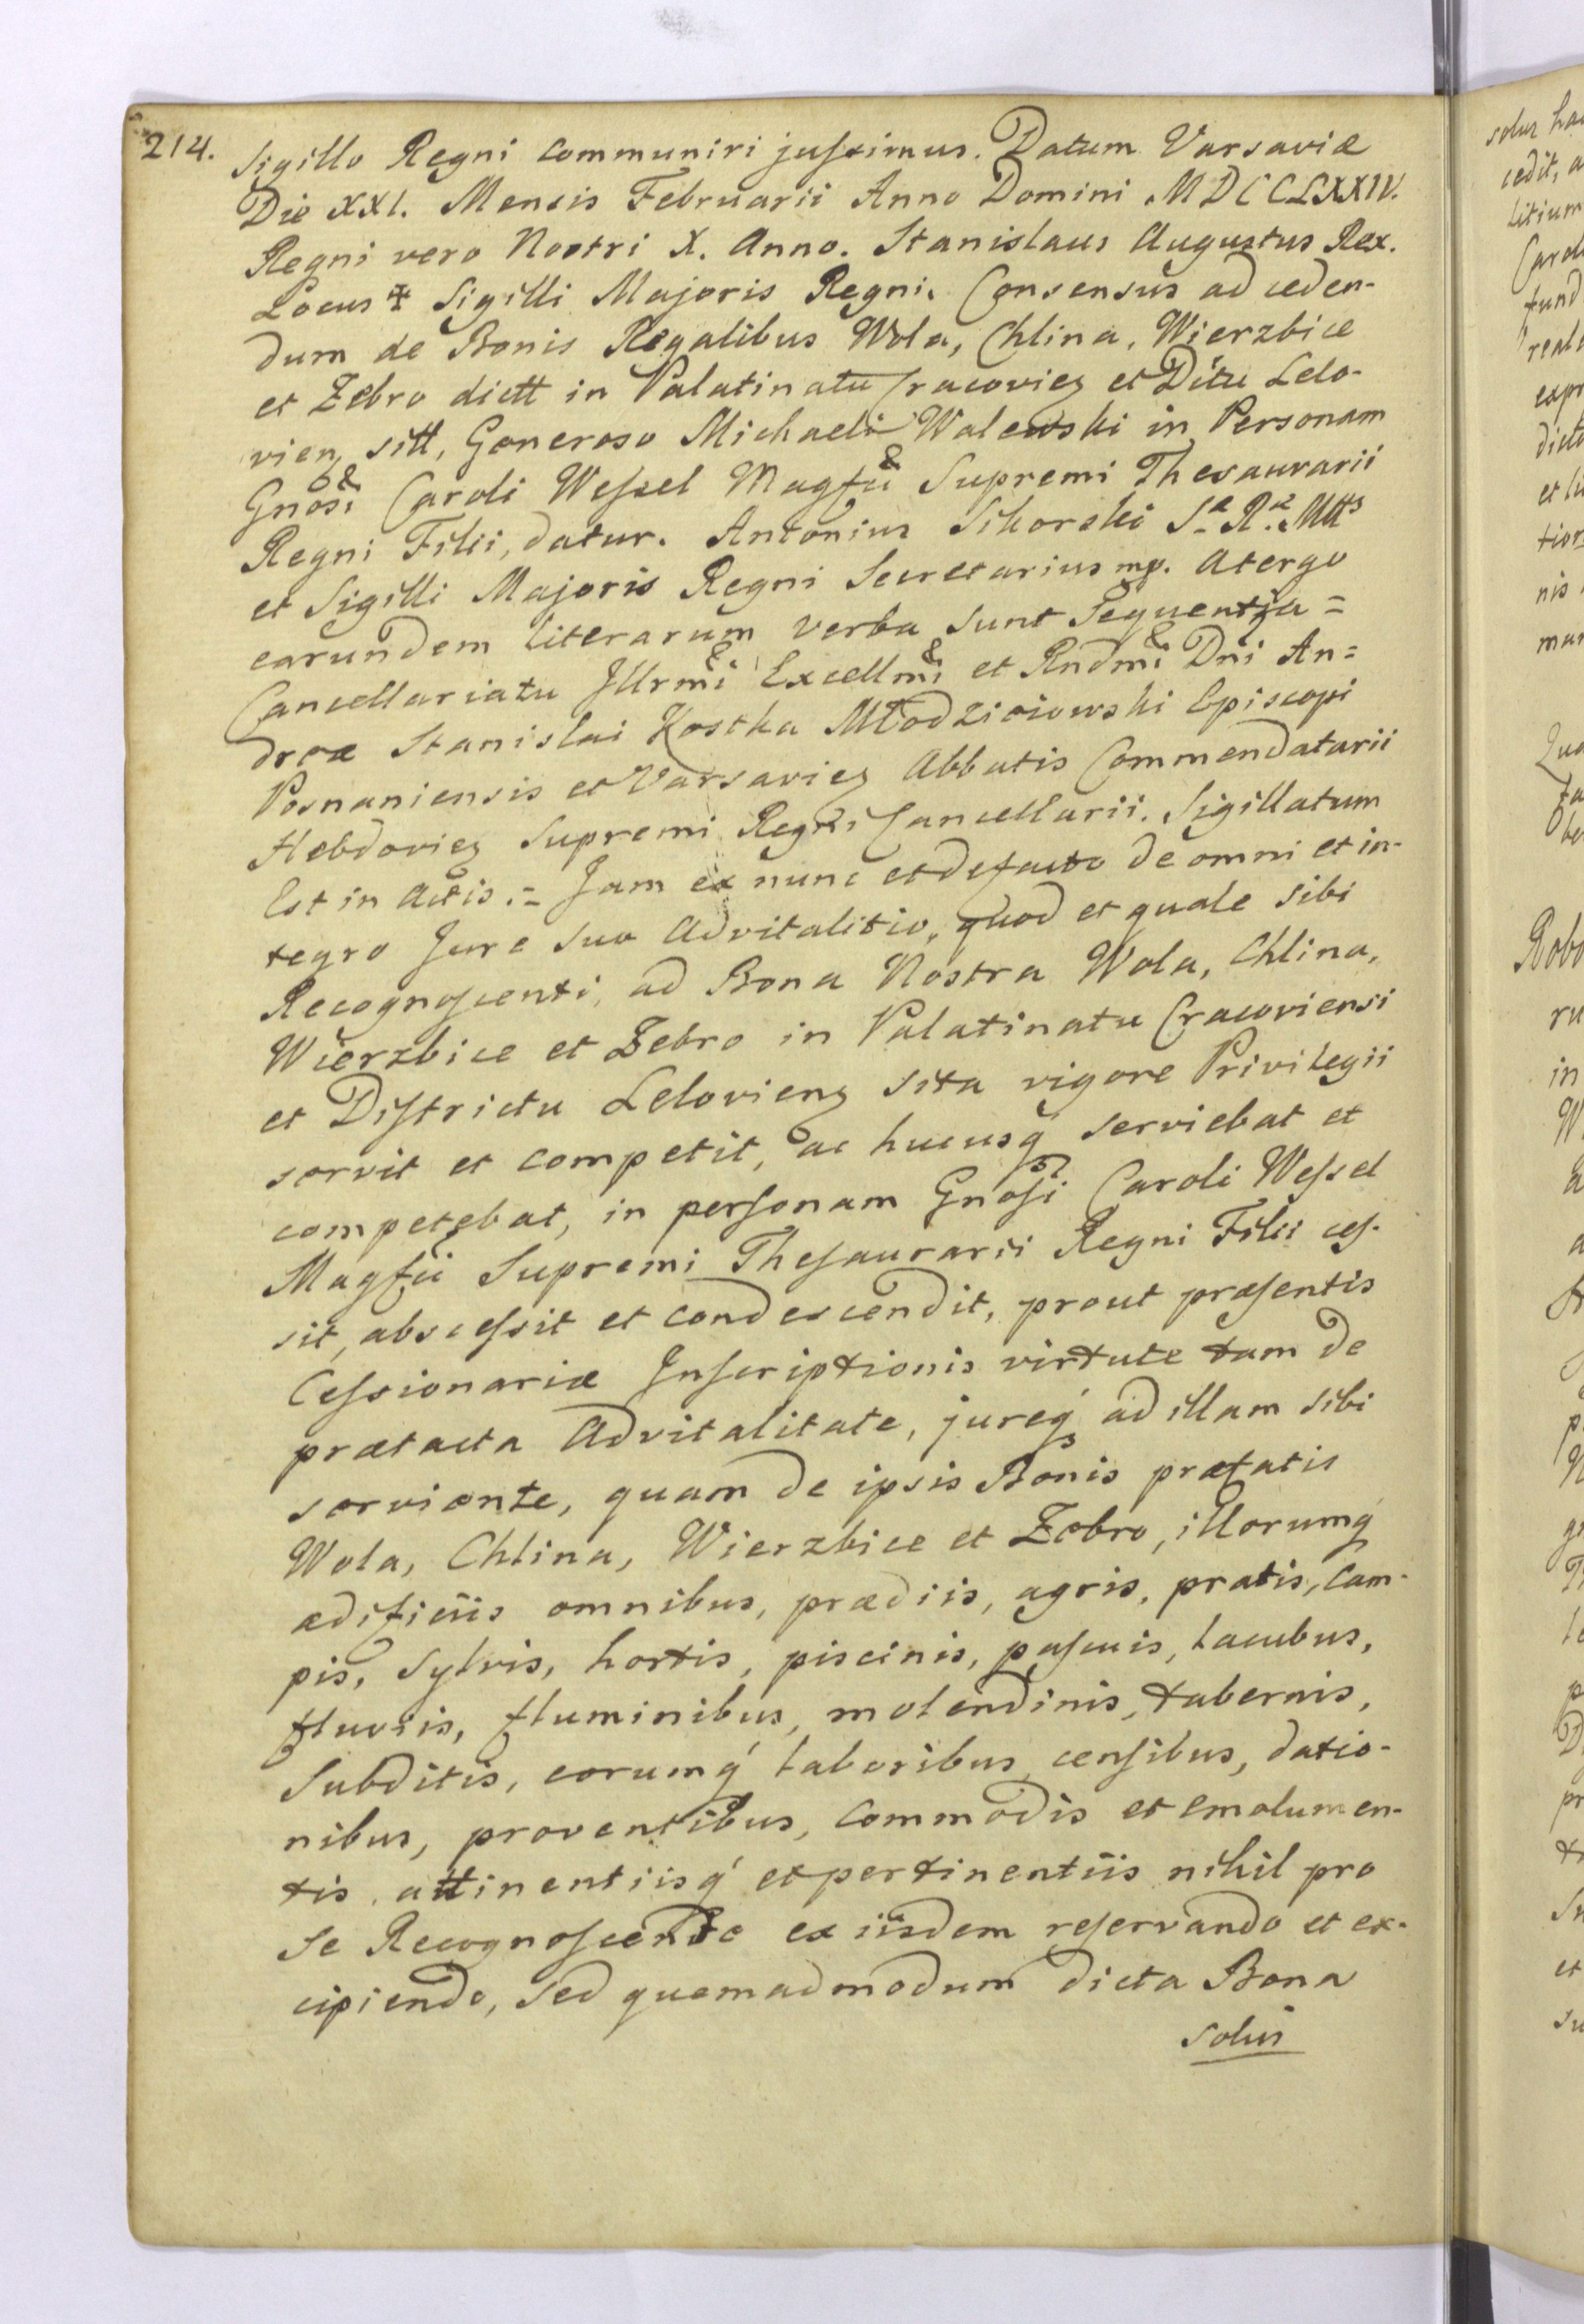 214.
Sigillo Regni communiri jussimus. Datum Varsaviæ
Die XXI. Mensis Februarii Anno Domini MDCCLXXIV.
Regni vero Nostri X. Anno. Stanislaus Augustus Rex.
Locus ‡ Sigilli Majoris Regni. Consensus ad ceden-
dum de Bonis Regalibus Wola, Chlina, Wierzbice
et Zebro dictt in Palatinatu Cracovieɳ et Dittu Lelo-
vieɳ sitt, Generoso Michaeli Walewski in Personam
Gnosi Caroli Weſsel Magfci Supremi Thesaurarii
Regni Filii, datur. Antonius Sikorski S. R. Mttis
et Sigilli Majoris Regni Secretarius mp. Atergo
earundem literarum verba sunt Sequentia =
Cancellariatu Illrmi Excellmi et Rndmi Dni An=
dreæ Stanislai Kostka Młodzieiowski Episcopi
Posnaniensis et Varsavieɳ Abbatis Commendatarii
Hebdovieɳ Supremi Regni Cancellarii. Sigillatum
Est in Actis. = Jam ex nunc et defacto de omni et in-
tegro Jure suo Advitalitio, quod et quale sibi
Recognoſcenti, ad Bona Nostra Wola, Chlina,
Wierzbice et Zebro in Palatinatu Cracoviensi
et Diſtrictu Lelovienɳ sita vigore Privilegii
servit et competit, ac hucusq́ serviebat et
competebat, in perſonam Gnoſi Caroli Weſsel
Magfci Supremi Theſaurarii Regni Filii ceſ-
sit, absceſsit et condescendit, prout præſentis
Ceſsionariæ Inſcriptionis virtute tam de
prætacta Advitalitate, jureq́ ad illam sibi
serviente, quam de ipsis Bonis præfatis
Wola, Chlina, Wierzbice et Zebro, illorumq́
ædificiis omnibus, prædiis, agris, pratis, Cam-
pis, Sylvis, hortis, piscinis, paſcuis, lacubus,
fluviis, fluminibus, molendinis, tabernis,
Subditis, eorumq́ laboribus, cenſibus, datio-
nibus, proventibus, commodis et emolumen-
tis, attinentiisq́ et pertinentiis nihil pro
se Recognoſcente ex iisdem reſervando et ex-
cipiendo, Sed quemadmodum dicta Bona
solus